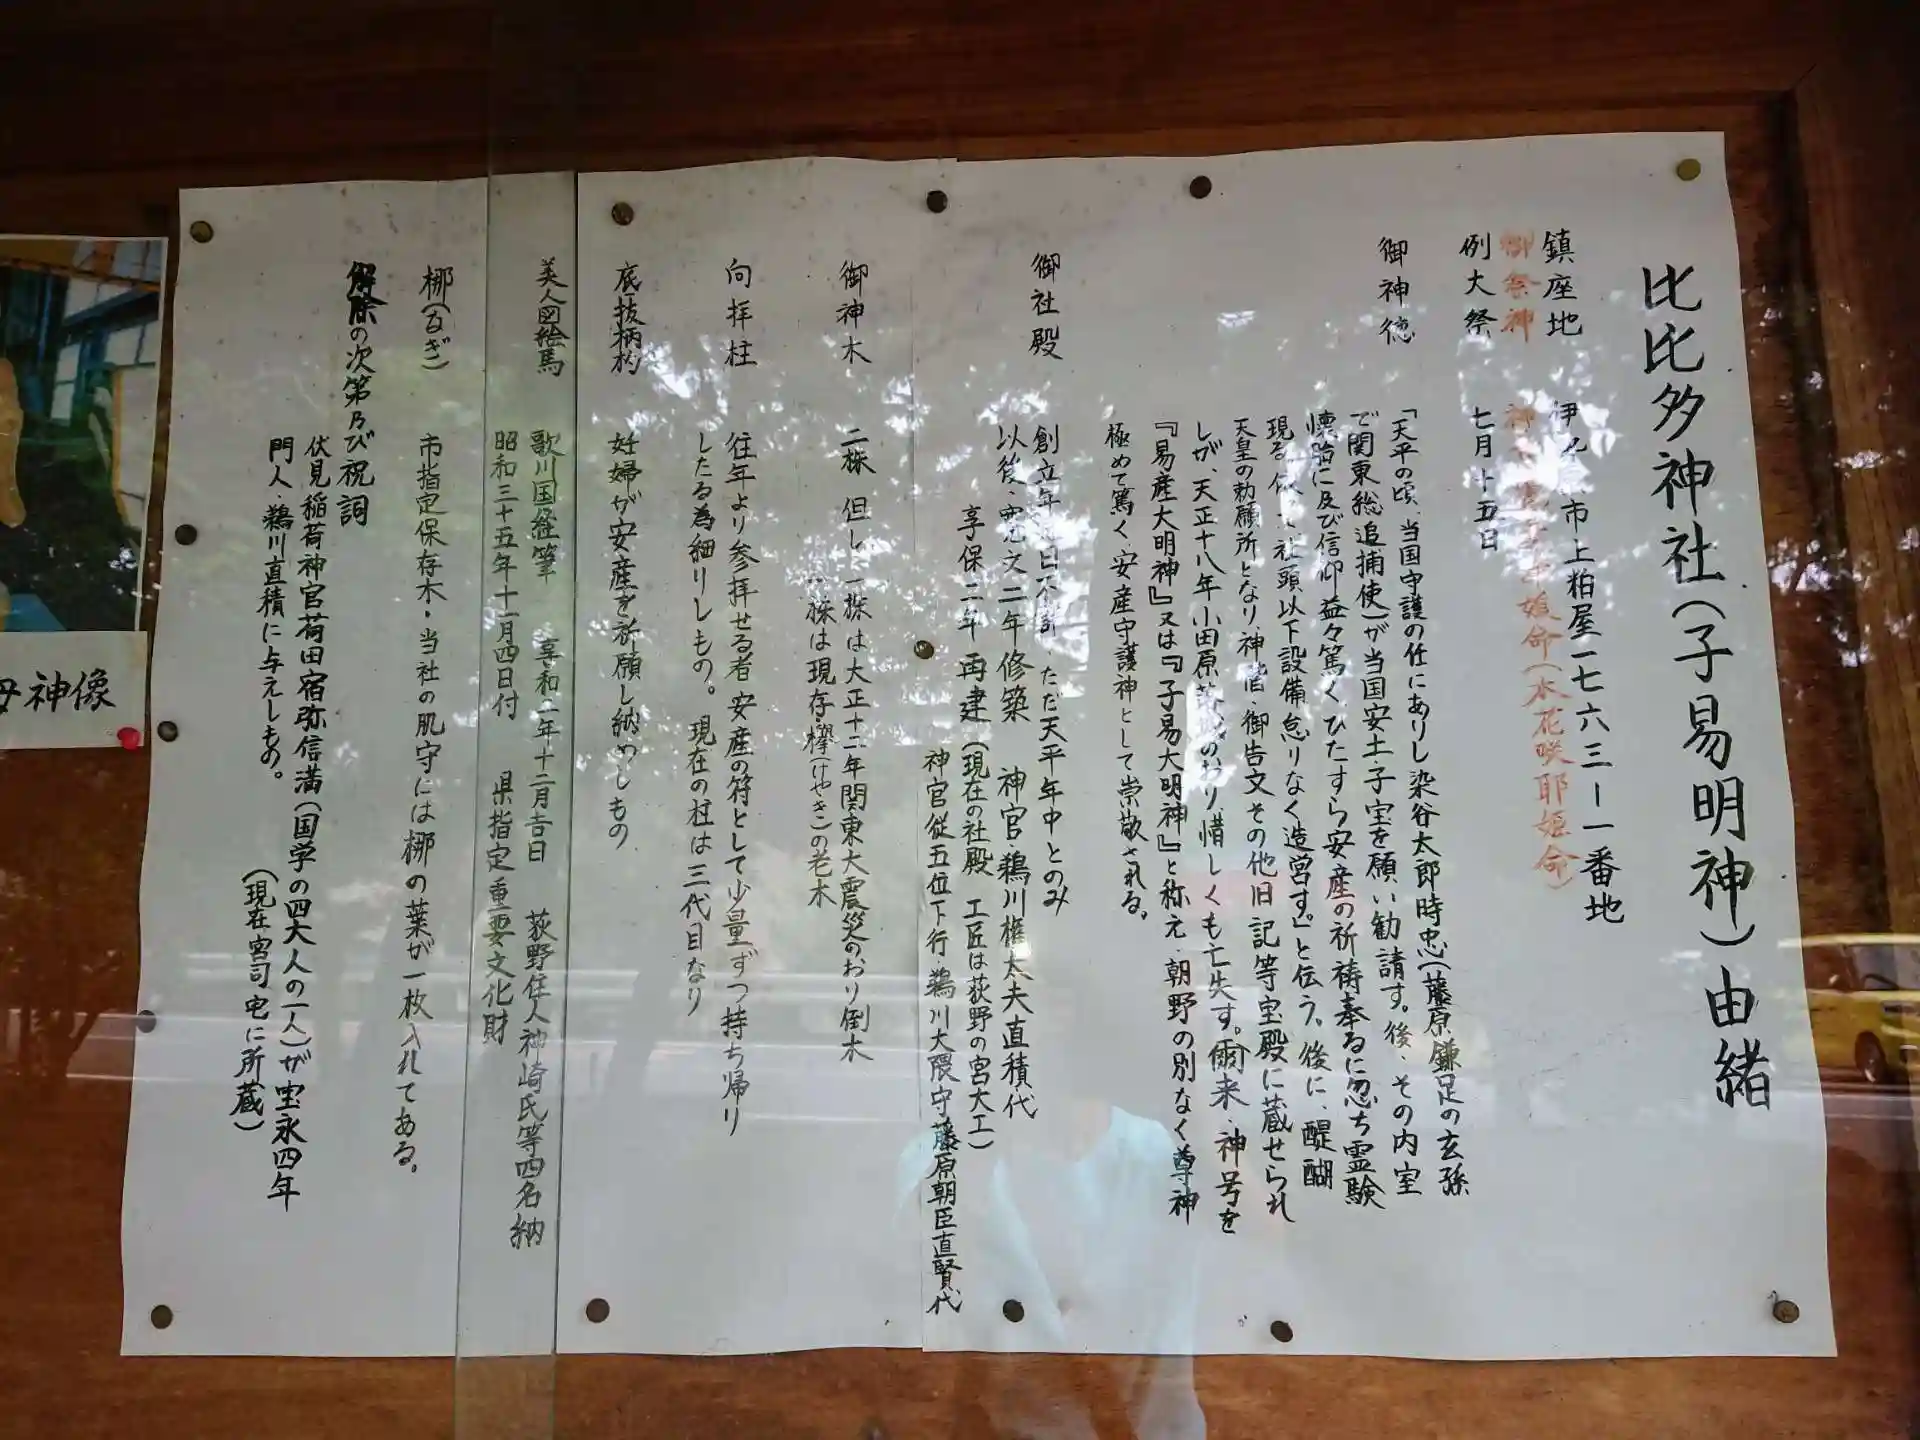 比比多神社(子易明神)由緒
鎮座地 伊 市上粕屋一七六三ー一番地
御祭神 神 命(木花咲耶姫命)
例大祭 七月十五日
御神徳 「天平の頃、当国守護の任にありし染谷太郎時忠(藤原鎌足の玄孫
で関東総追捕使)が当国安土・子宝を願い勧請す。後、その内室
懐胎に及び信仰益々篤くひたすら安産の祈祷奉るに忽ち霊験
現る。 社頭以下設備怠りなく造営す。」と伝う。後に、醍醐
天皇の勅願所となり、神階・御告文その他旧記等宝殿に蔵せられ
しが、天正十八年小田原 のおり、惜しくも亡失す。爾来、神号を
『易産大明神』又は『子易大明神』と称え、朝野の別なく尊神
極めて篤く、安産守護神として崇敬される。
御社殿 創立年 日不 ただ天平年中とのみ
以後・寛文二年修築 神官・鵜川権太夫直積代
享保二年再建(現在の社殿 工匠は荻野の宮大工)
神官従五位下行・鵜川大隈守藤原朝臣直賢代
御神木 二株 但し、一株は大正十二年関東大震災のおり倒木
一株は現存・欅(けやき)の老木
向拝柱 往年より参拝せる者 安産の符として少量ずつ持ち帰り
したる為細りしもの。現在の柱は三代目なり
底抜柄杓 妊婦が安産を祈願し納めしもの
美人図絵馬 歌川国経筆 享和二年十二月吉日 荻野住人神崎氏等四名納
昭和三十五年十一月四日付 県指定重要文化財
梛(なぎ) 市指定保存木・当社の肌守には梛の葉が一枚入れてある。
解除の次第及び祝詞
伏見稲荷神官荷田宿弥信満(国学の四大人の一人)が宝永四年
門人・鵜川直積に与えしもの。 (現在宮司宅に所蔵)
神像